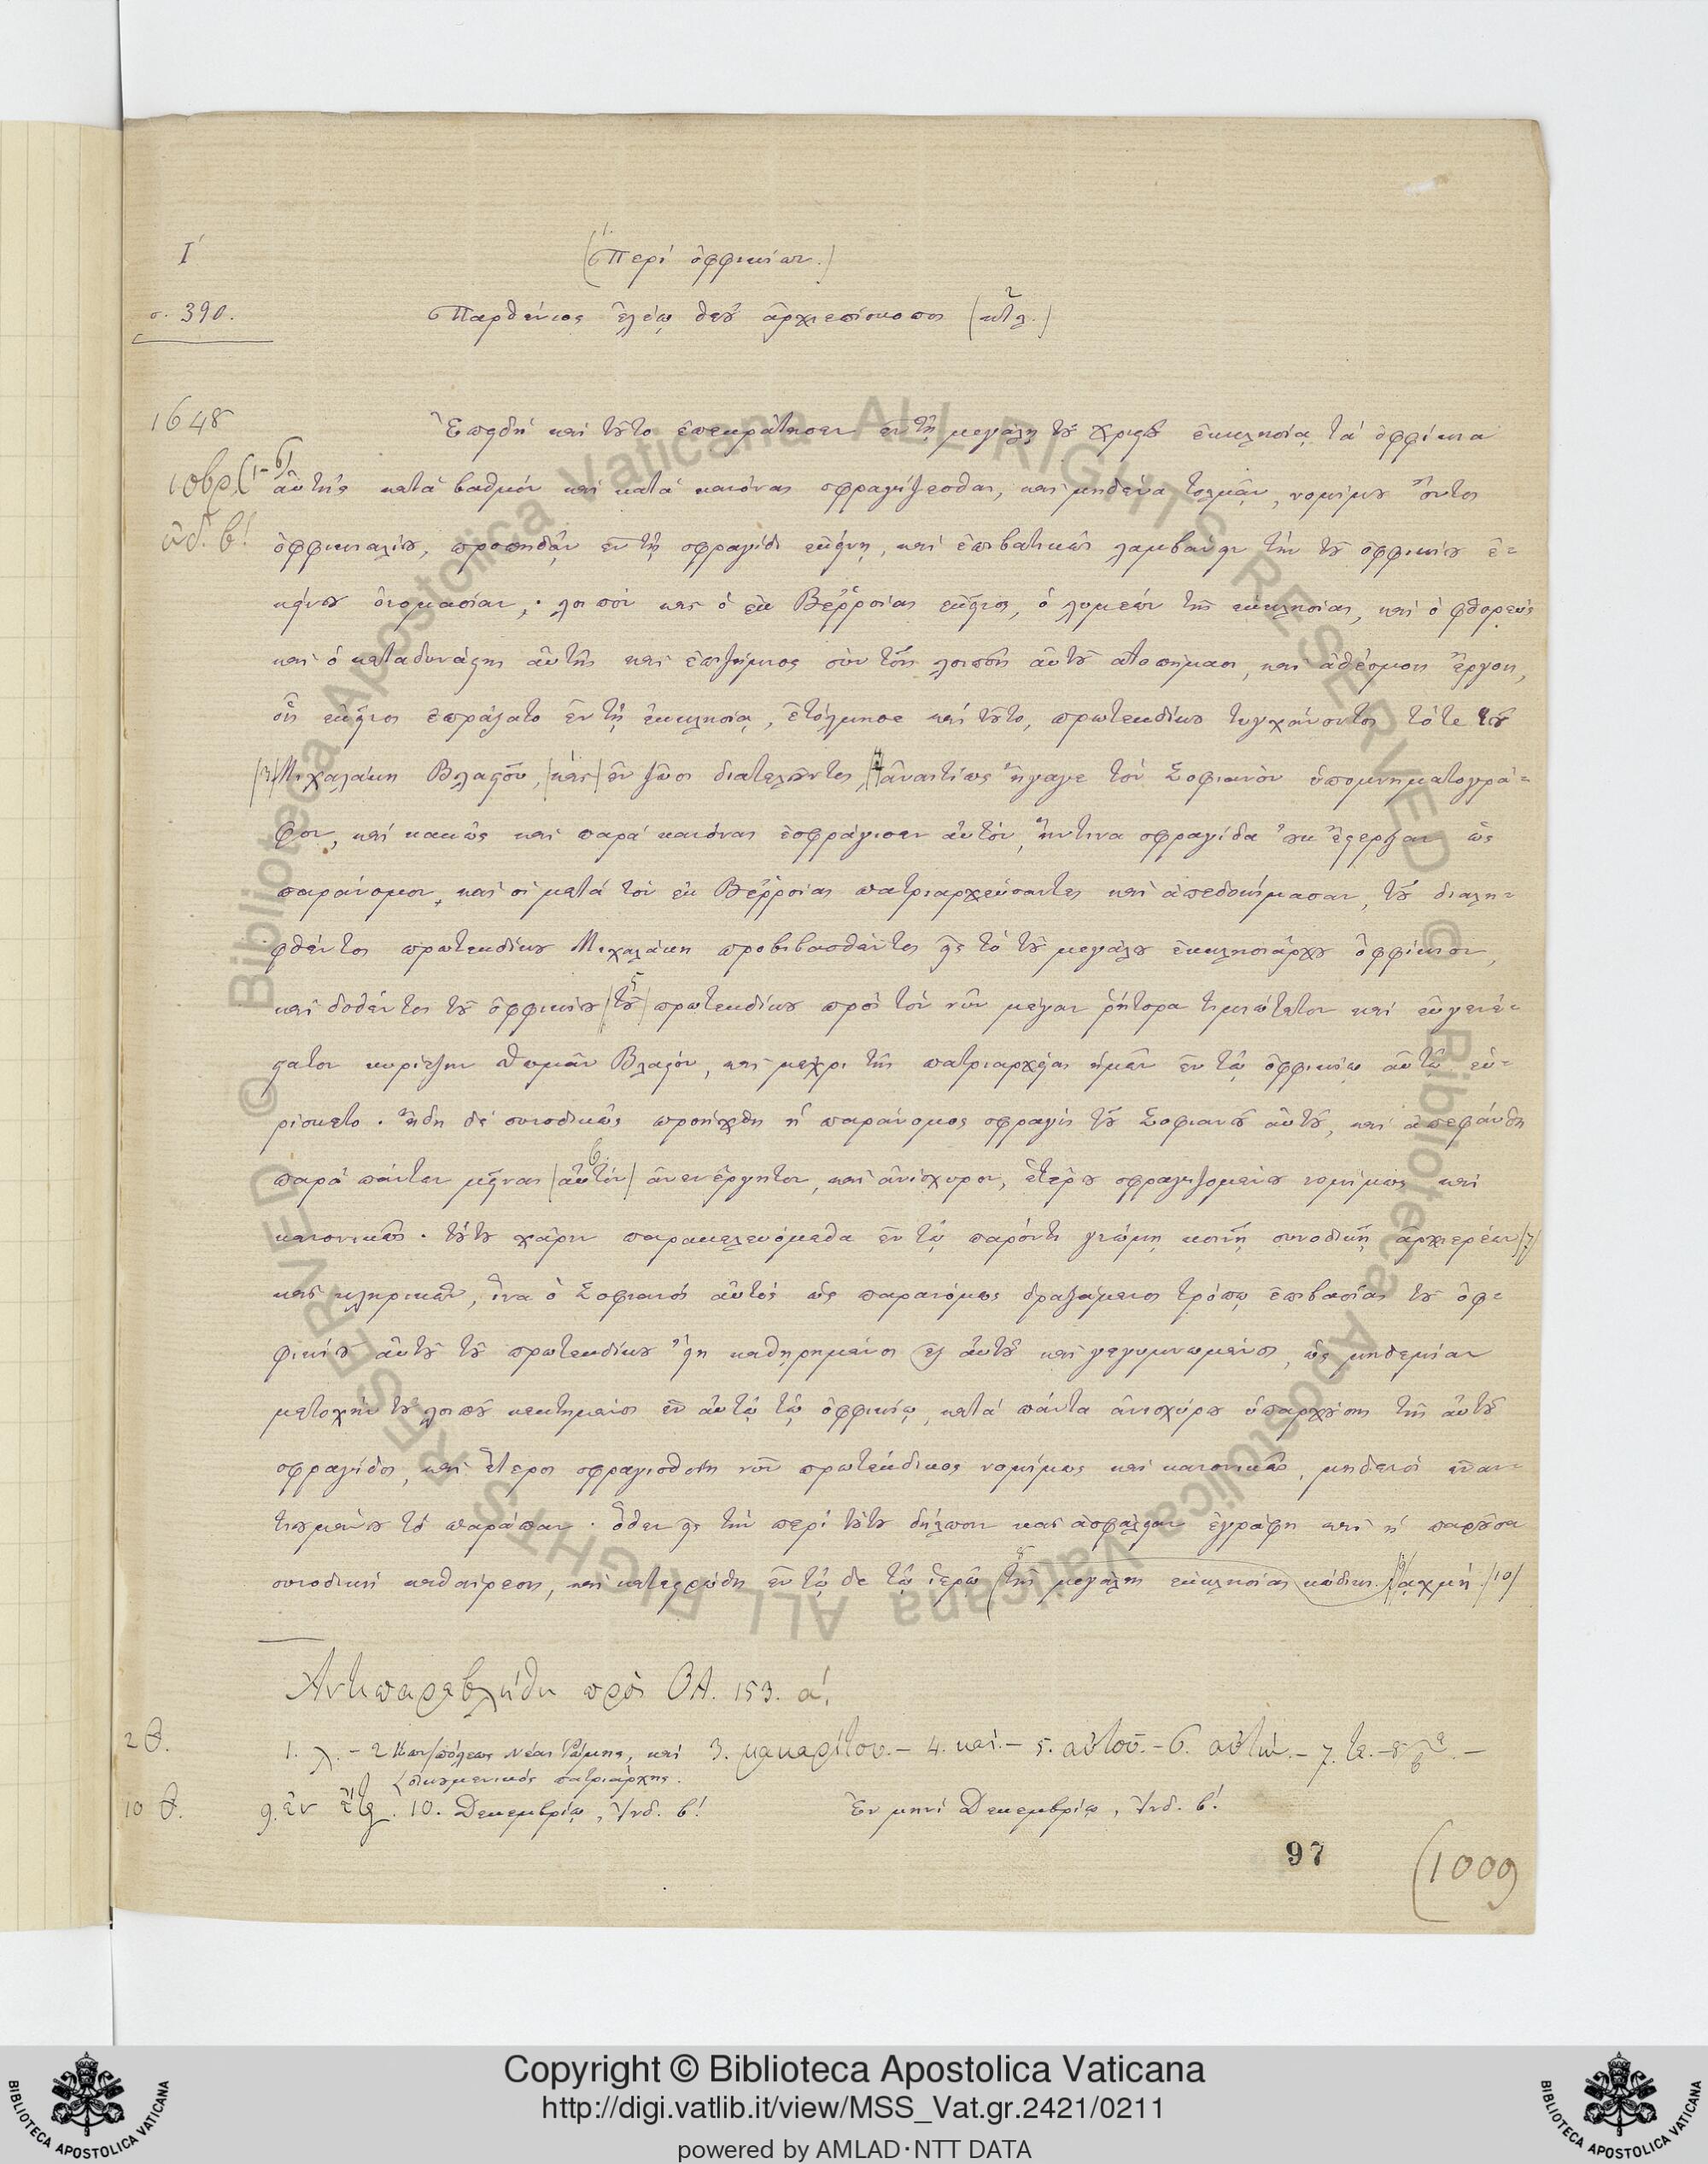 Ι΄
(Περὶ ὀφφικίων.)
σ. 390.
Παρθένιος ἐλέῳ Θεοῦ ἀρχιεπίσκοπος (κτλ.)
1648
Ἐπειδὴ καὶ τοῦτο ἐπεκράτησεν ἐν τῇ μεγάλῃ τοῦ Χριστοῦ ἐκκλησίᾳ τὰ ὀφφίκια
ἰνδ. β΄
αὐτῆς κατὰ βαθμὸν καὶ κατὰ κανόνας σφραγίζεσθαι, καὶ μηδένα τολμᾶν, νομίμου ὄντος
ὀφφικιαλίου, προπηδᾶν ἐν τῇ σφραγίδι ἐκείνῃ, καὶ ἐπιβατικῶς λαμβάνειν τὴν τοῦ ὀφφικίου ἐ-
κείνου ὀνομασίαν, · λοιπὸν καὶ ὁ ἐκ Βεῤῥοίας ἐκεῖνος, ὁ λυμεὼν τῆς ἐκκλησίας, καὶ ὁ φθορεὺς
καὶ ὁ καταδυνάστης αὐτῆς καὶ ἐπιζήμιος σὺν τοῖς λοιποῖς αὐτοῦ ἀτοπήμασι, καὶ ἀθέσμοις ἔργοις,
οἷς ἐκεῖνος ἐπράξατο ἐν τῇ ἐκκλησίᾳ, ἐτόλμησε καὶ τοῦτο, πρωτεκδίκου τυγχάνοντος τότε τοῦ
/3/ Μιχαλάκη Βλαστοῦ, /καὶ/ ἐν ζῶσι διατελοῦντος, /4/ ἀναιτίως ἤγαγε τὸν Σοφιανὸν ὑπομνηματογρά-
φον, καὶ κακῶς καὶ παρὰ κανόνας ἐσφράγισεν αὐτόν, ἥντινα σφραγίδα οὐκ ἔστερξαν ὡς
παράνομον, καὶ οἱ μετὰ τὸν ἐκ Βεῤῥοίας πατριαρχεύσαντες καὶ ἀπεδοκίμασαν, τοῦ διαλη-
φθέντος πρωτεκδίκου Μιχαλάκη προβιβασθέντος εἰς τὸ τοῦ μεγάλου ἐκκλησιάρχου ὀφφίκιον,
καὶ δοθέντος τοῦ ὀφφικίου /τοῦ/ 5 πρωτεκδίκου πρὸς τὸν νῦν μέγαν ῥήτορα τιμιώτατον καὶ εὐγενέ-
στατον κυρίτζην Θωμᾶν Βλαστόν, καὶ μέχρι τῆς πατριαρχείας ἡμῶν ἐν τῷ ὀφφικίῳ αὐτῷ εὑ-
ρίσκετο · ἤδη δὲ συνοδικῶς προήχθη ἡ παράνομος σφραγὶς τοῦ Σοφιανοῦ αὐτοῦ, καὶ ἀπεφάνθη
παρὰ πάντων μεῖναι /αὐτὸν/ 6 ἀνενέργητον, καὶ ἀνίσχυρον, ἑτέρου σφραγιζομένου νομίμως καὶ
κανονικῶς · τούτου χάριν παρακελευόμεθα ἐν τῷ παρόντι γνώμῃ κοινῇ συνοδικῇ ἀρχιερέων /7/
καὶ κληρικῶν, ἵνα ὁ Σοφιανὸς αὐτὸς ὡς παρανόμως δραξάμενος τρόπῳ ἐπιβασίας τοῦ ὀφ-
φικίου αὐτοῦ τοῦ πρωτεκδίκου εἴη καθῃρημένος ἐξ αὐτοῦ καὶ γεγυμνωμένος, ὡς μηδεμίαν
μετοχὴν τοῦ λοιποῦ κεκτημένος ἐν αὐτῷ τῷ ὀφφικίῳ, κατὰ πάντα ἀνισχύρου ὑπαρχούσης τῆς αὐτοῦ
σφραγίδος, καὶ ἕτερος σφραγισθείη νῦν πρωτέκδικος νομίμως καὶ κανονικῶς, μηδενὸς ἐναν-
τιουμένου τὸ παράπαν · ὅθεν εἰς τὴν περὶ τούτου δήλωσιν καὶ ἀσφάλειαν ἐγράφη καὶ ἡ παροῦσα
συνοδικὴ καθαίρεσις, καὶ κατεστρώθη ἐν τῷδε τῷ ἱερῷ (τῆς 8 μεγάλης ἐκκλησίας κώδικι. /9/ ͵αχμή. /10/
Ἀντιπαρεβλήθη πρὸς ΘΑ. 153. α΄.
2 θ.
1. λ. - 2 Κων/πόλεως Νέας Ῥώμης, καὶ 3. μακαρίτου. - 4. καὶ. - 5. αὐτοῦ. - 6. αὐτὴν. - 7. τε. - 8
οἰκουμενικὸς πατριάρχης.
10 θ.
9. ἐν ἔτει. 10. Δεκεμβρίῳ, Ἰνδ. β΄! Ἐν μηνὶ Δεκεμβρίῳ, Ἰνδ. β΄!
97
(1009
Copyright © Biblioteca Apostolica Vaticana
http://digi.vatlib.it/view/MSS_Vat.gr.2421/0211
powered by AMLAD·NTT DATA